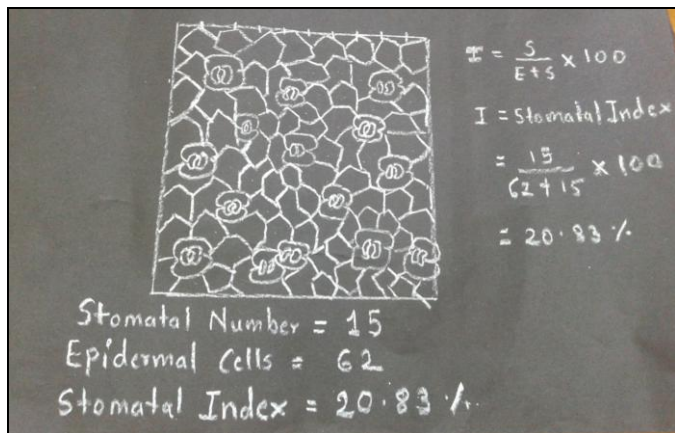 I = S / E+S × 100
I = Stomatal Index
= 15 / 62+15 × 100
= 20.83 %
Stomatal Number = 15
Epidermal Cells = 62
Stomatal Index = 20.83 %